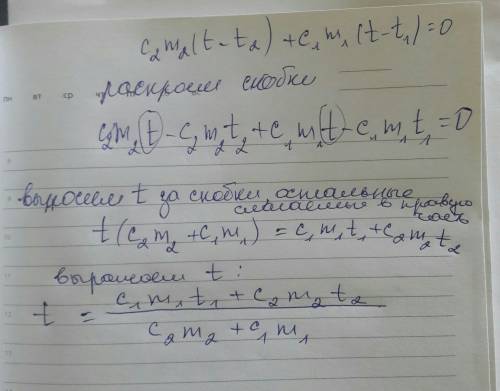 c₂m₂(t-t₂)+c₁m₁(t-t₁)=0
раскроем скобки
пн вт ср
c₂m₂t-c₂m₂t₂+c₁m₁t-c₁m₁t₁=0
выносим t за скобки, остальные
слагаемые в правую
часть
t(c₂m₂+c₁m₁)=c₁m₁t₁+c₂m₂t₂
выражаем t:
t = c₁m₁t₁+c₂m₂t₂
c₂m₂+c₁m₁